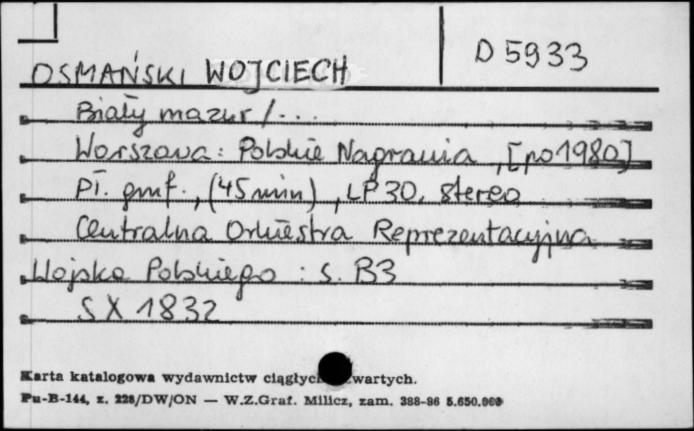 D 5933
OSMAŃSKI WOJCIECH
Biały mazur / ...
Warszawa : Polskie Nagrania , [po 1980]
Pł. gmf. , (45 min) , LP 30. stereo
Centralna Orkiestra Reprezentacyjna
Wojska Polskiego : s. B3
SX 1832
Karta katalogowa wydawnictw ciągłyc wartych.
Pu-B-144, z. 228/DW/ON — W.Z.Graf. Milicz, zam. 388-86 5.650.000